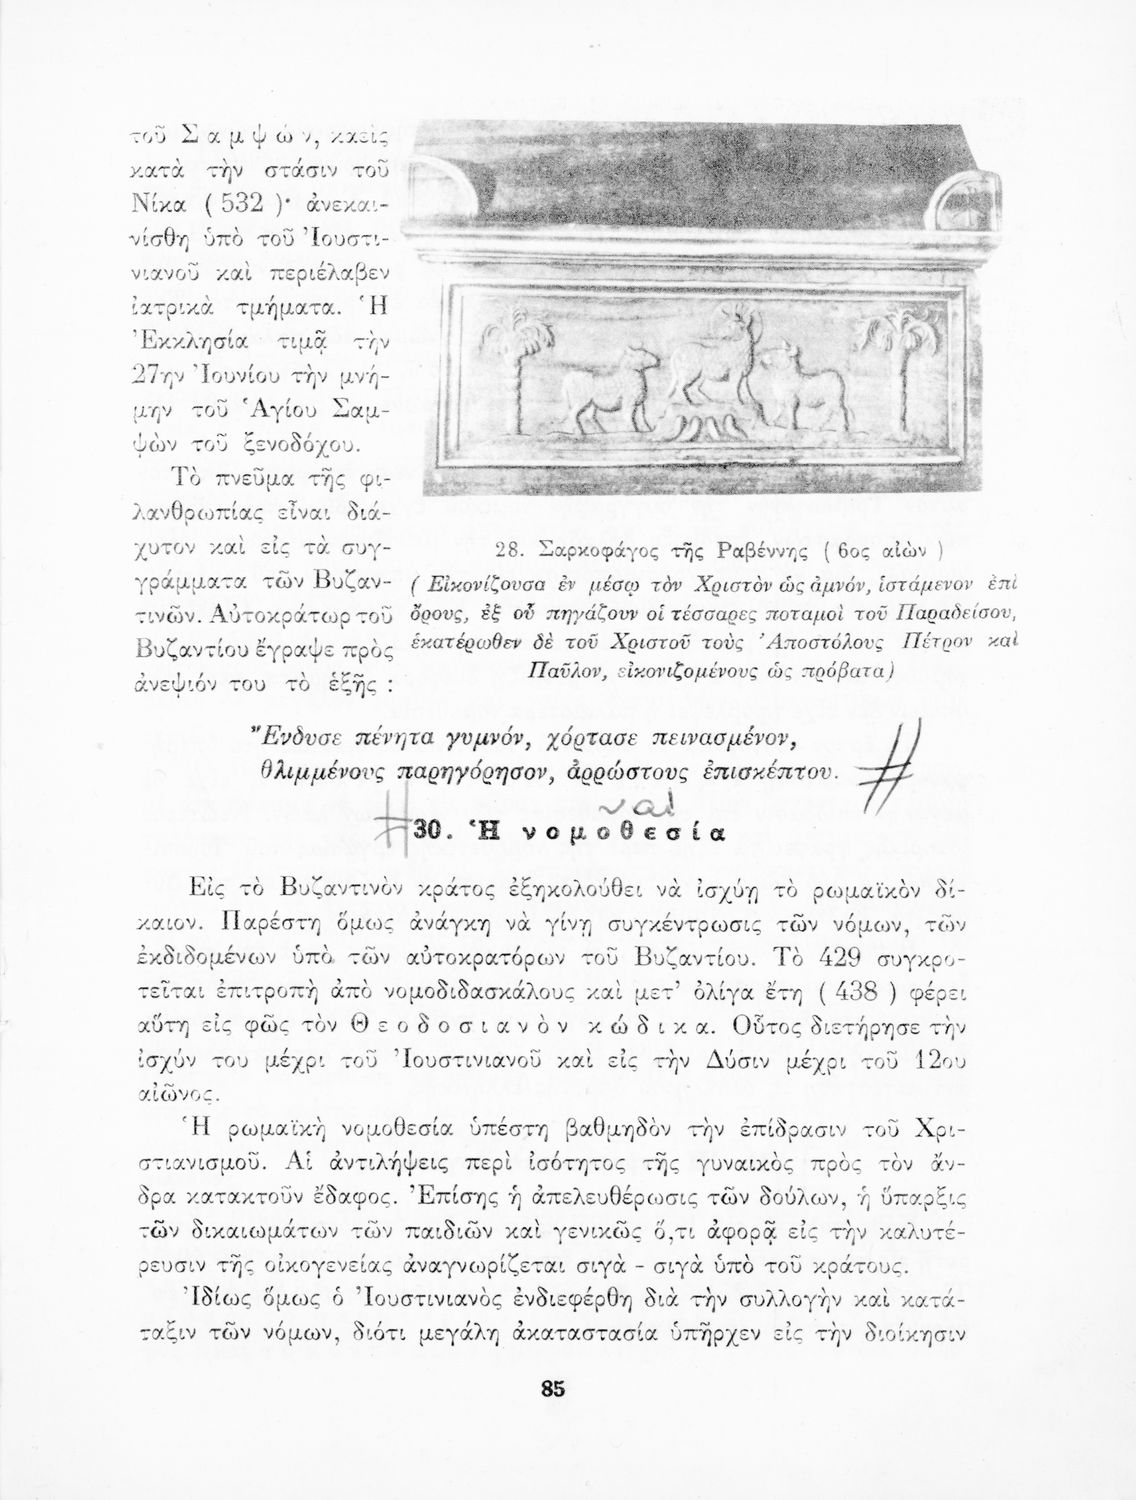 τοῦ Σαμψών, καεὶς
κατὰ τὴν στάσιν τοῦ
Νίκα (532)· ἀνεκαι-
νίσθη ὑπὸ τοῦ Ἰουστι-
νιανοῦ καὶ περιέλαβεν
ἰατρικὰ τμήματα. Ἡ
Ἐκκλησία τιμᾷ τὴν
27ην Ἰουνίου τὴν μνή-
μην τοῦ Ἁγίου Σαμ-
ψὼν τοῦ ξενοδόχου.
Τὸ πνεῦμα τῆς φι-
λανθρωπίας εἶναι διά-
χυτον καὶ εἰς τὰ συγ-
γράμματα τῶν Βυζαν-
τινῶν. Αὐτοκράτωρ τοῦ
Βυζαντίου ἔγραψε πρὸς
ἀνεψιόν του τὸ ἑξῆς :
28. Σαρκοφάγος τῆς Ραβέννης (6ος αἰὼν)
(Εἰκονίζουσα ἐν μέσῳ τὸν Χριστὸν ὡς ἀμνόν, ἱστάμενον ἐπὶ
ὄρους, ἐξ οὗ πηγάζουν οἱ τέσσαρες ποταμοὶ τοῦ Παραδείσου,
ἑκατέρωθεν δὲ τοῦ Χριστοῦ τοὺς Ἀποστόλους Πέτρον καὶ
Παῦλον, εἰκονιζομένους ὡς πρόβατα)
Ἔνδυσε πένητα γυμνόν, χόρτασε πεινασμένον,
θλιμμένους παρηγόρησον, ἀρρώστους ἐπισκέπτου.
ναί
30. Ἡ νομοθεσία
Εἰς τὸ Βυζαντινὸν κράτος ἐξηκολούθει νὰ ἰσχύῃ τὸ ρωμαϊκὸν δί-
καιον. Παρέστη ὅμως ἀνάγκη νὰ γίνῃ συγκέντρωσις τῶν νόμων, τῶν
ἐκδιδομένων ὑπὸ τῶν αὐτοκρατόρων τοῦ Βυζαντίου. Τὸ 429 συγκρο-
τεῖται ἐπιτροπὴ ἀπὸ νομοδιδασκάλους καὶ μετ' ὀλίγα ἔτη (438) φέρει
αὕτη εἰς φῶς τὸν Θεοδοσιανὸν κώδικα. Οὗτος διετήρησε τὴν
ἰσχύν του μέχρι τοῦ Ἰουστινιανοῦ καὶ εἰς τὴν Δύσιν μέχρι τοῦ 12ου
αἰῶνος.
Ἡ ρωμαϊκὴ νομοθεσία ὑπέστη βαθμηδὸν τὴν ἐπίδρασιν τοῦ Χρι-
στιανισμοῦ. Αἱ ἀντιλήψεις περὶ ἰσότητος τῆς γυναικὸς πρὸς τὸν ἄν-
δρα κατακτοῦν ἔδαφος. Ἐπίσης ἡ ἀπελευθέρωσις τῶν δούλων, ἡ ὕπαρξις
τῶν δικαιωμάτων τῶν παιδιῶν καὶ γενικῶς ὅ,τι ἀφορᾷ εἰς τὴν καλυτέ-
ρευσιν τῆς οἰκογενείας ἀναγνωρίζεται σιγὰ - σιγὰ ὑπὸ τοῦ κράτους.
Ἰδίως ὅμως ὁ Ἰουστινιανὸς ἐνδιεφέρθη διὰ τὴν συλλογὴν καὶ κατά-
ταξιν τῶν νόμων, διότι μεγάλη ἀκαταστασία ὑπῆρχεν εἰς τὴν διοίκησιν
85